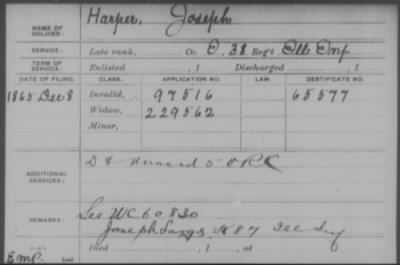 NAME OF SOLDIER: Harper, Joseph
SERVICE: Late rank, Co. D, 38 Reg't Ill Inf
TERM OF SERVICE: Enlisted , 1 Discharged , 1
DATE OF FILING. CLASS. APPLICATION NO. LAW. CERTIFICATE NO.
1865 Dec 8 Invalid, 97516 65577
Widow, 229562
Minor,
ADDITIONAL SERVICES: D &
REMARKS: See WC 60830
Joseph K 87 Ill Inf
Died , 1 , at